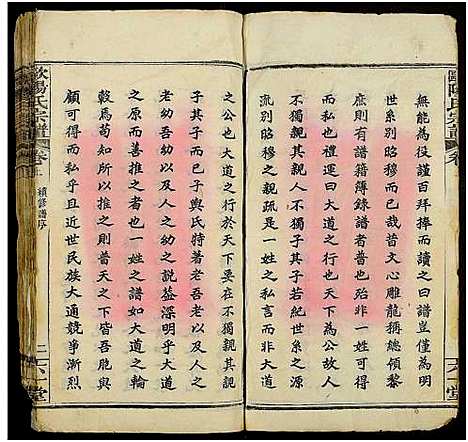 無能為役謹百拜捧而讀之曰譜豈僅為明
世系別昭穆而已矣昔文心雕龍稱總領黎
庶則有譜籍簿錄譜者普也殆非一姓一人
之私言矣大道之行也天下為公故人
不獨親其親不獨子其子若紀世系之源
流別昭穆之親疏是一姓之私言而非大道
之公也大道之行於天下要在不獨親其親
子其子而已子輿氏特著老吾老以及人之
老幼吾幼以及人之幼之說益深明乎大道
之行善推之者也一姓之譜如大道之輪
轂焉苟知所以推之則普天之下皆吾族與
顧可得而私乎且近世民族大通競爭漸烈
歐陽氏宗譜
卷
續修譜序
二
六一堂
歐陽氏宗譜
卷
六一堂